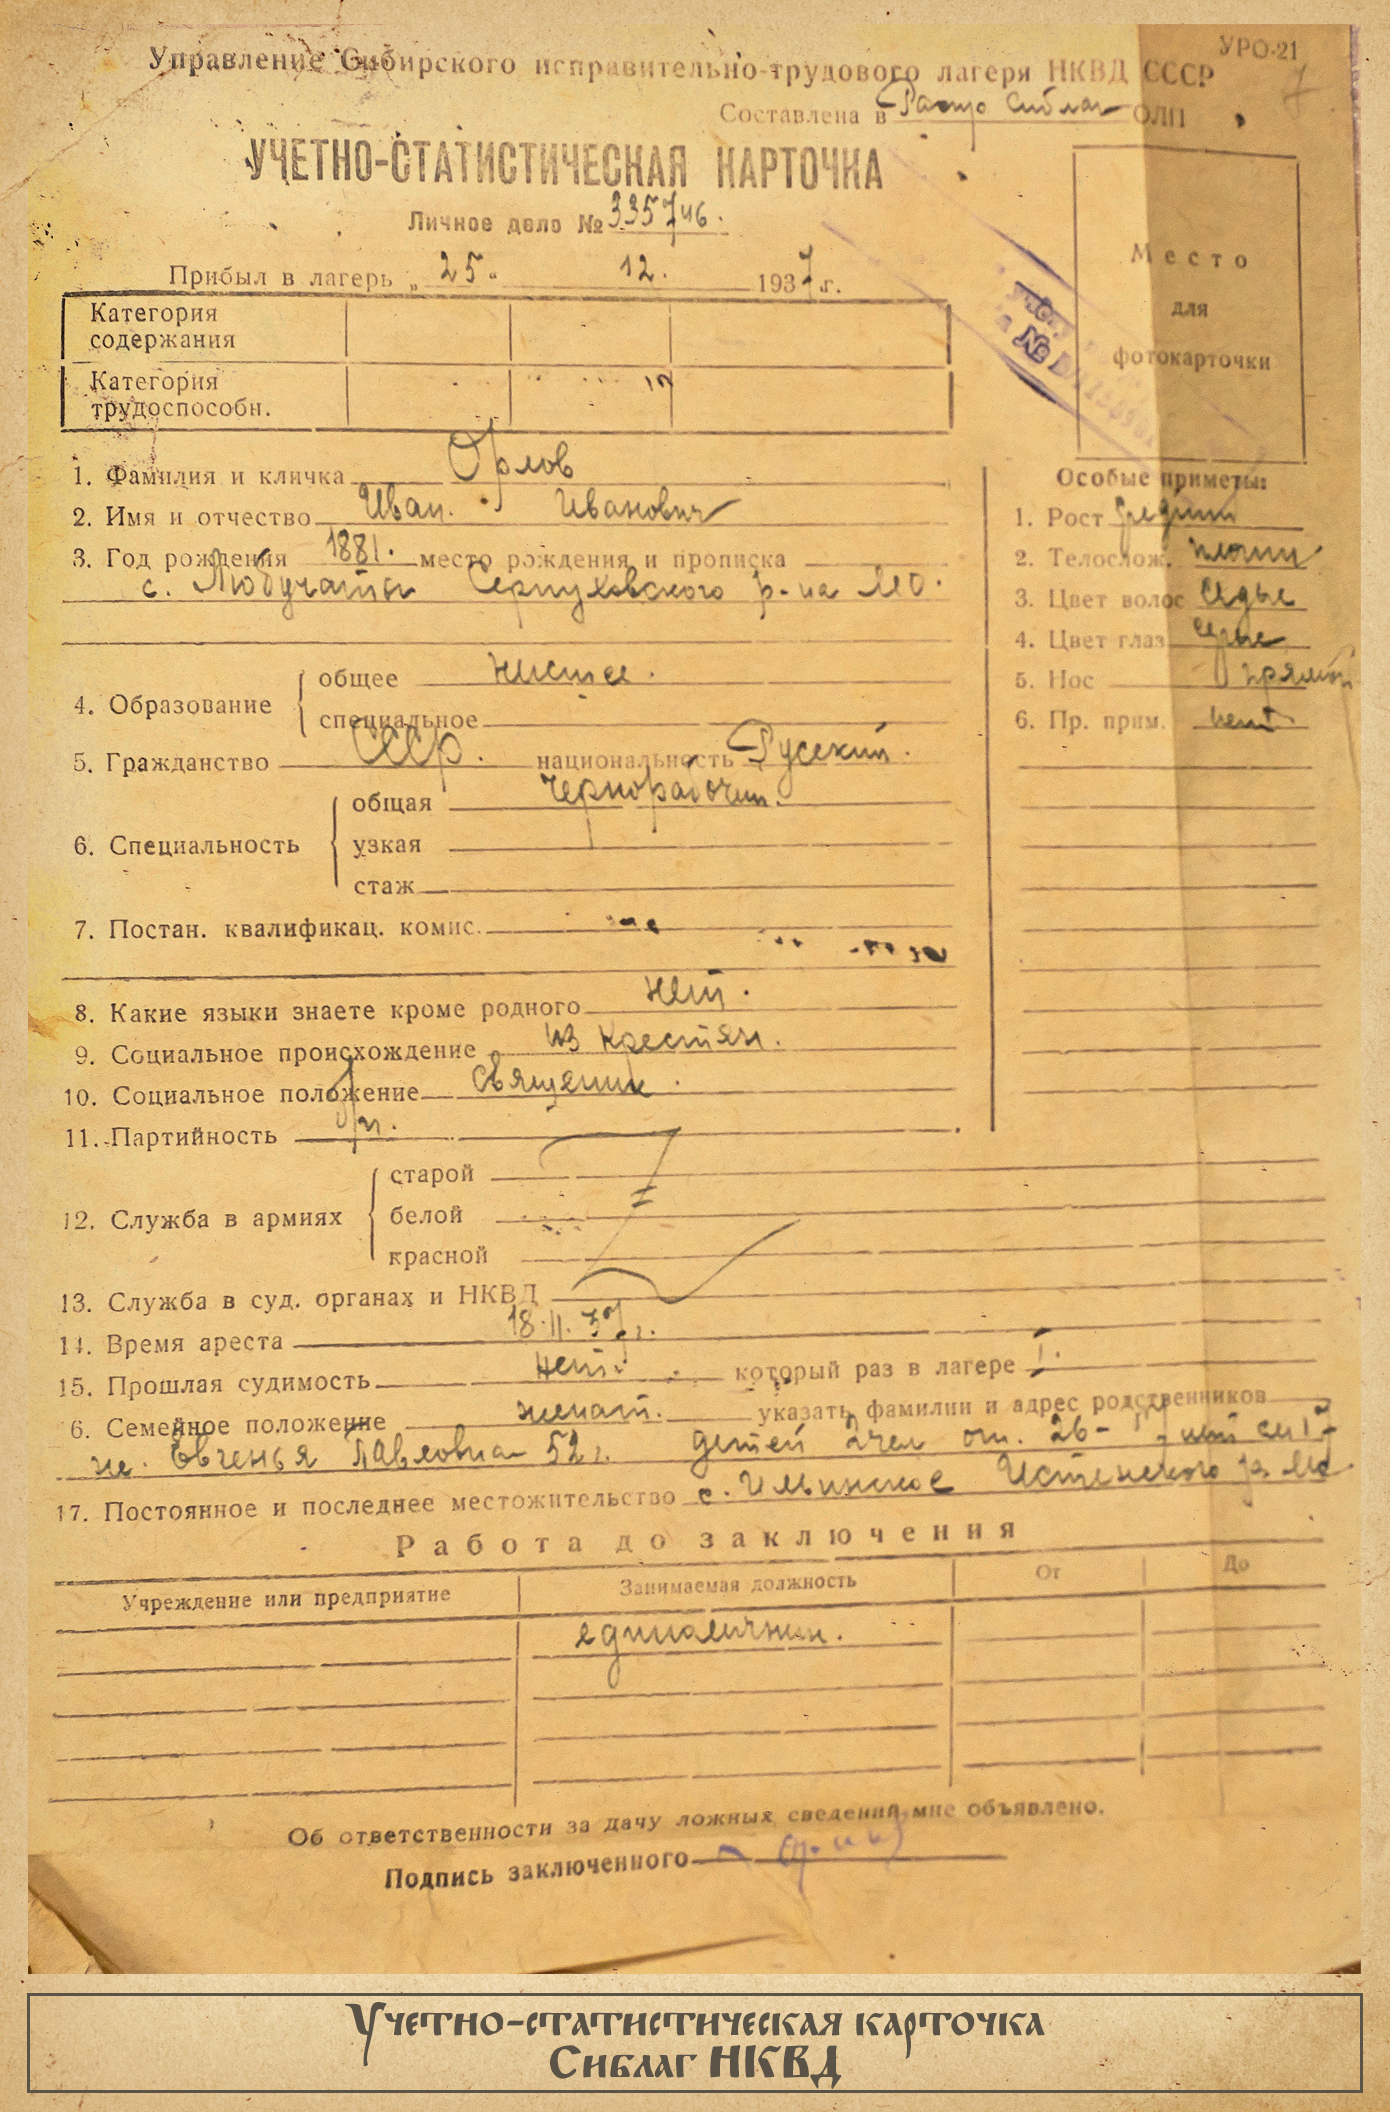 УРО-21
7
Управление Сибирского исправительно-трудового лагеря НКВД СССР
Составлена в Распр Сиблаг ОЛП
УЧЕТНО-СТАТИСТИЧЕСКАЯ КАРТОЧКА
Личное дело № 335746.
Прибыл в лагерь „ 25 " 12. 1937 г.
Место
для
фотокарточки
№
Категория
содержания
Категория
трудоспособн.
1. Фамилия и кличка Орлов
2. Имя и отчество Иван. Иванович
3. Год рождения 1881. место рождения и прописка
с. Любучаты Серпуховского р-на МО.
4. Образование
общее низшее.
специальное
5. Гражданство СССР. национальность Русский.
6. Специальность
общая Чернорабочий.
узкая
стаж
7. Постан. квалификац. комис.
8. Какие языки знаете кроме родного нет.
9. Социальное происхождение из крестян.
10. Социальное положение Священник.
11. Партийность б/п.
12. Служба в армиях
старой
белой
красной
13. Служба в суд. органах и НКВД
14. Время ареста 18.11.37 г.
15. Прошлая судимость нет. который раз в лагере I.
6. Семейное положение женат. указать фамилии и адрес родственников
ж. Евгенья Павловна 52 г. детей 2 чел от. 26-
17. Постоянное и последнее местожительство с. Ильинское Истенского р. МО.
Особые приметы:
1. Рост средний
2. Телослож. плотн
3. Цвет волос седые
4. Цвет глаз серые
5. Нос прямой
6. Пр. прим. нет
Работа до заключения
Учреждение или предприятие Занимаемая должность От До
единоличник.
Об ответственности за дачу ложных сведений мне объявлено.
Подпись заключенного
Учетно-статистическая карточка
Сиблаг НКВД